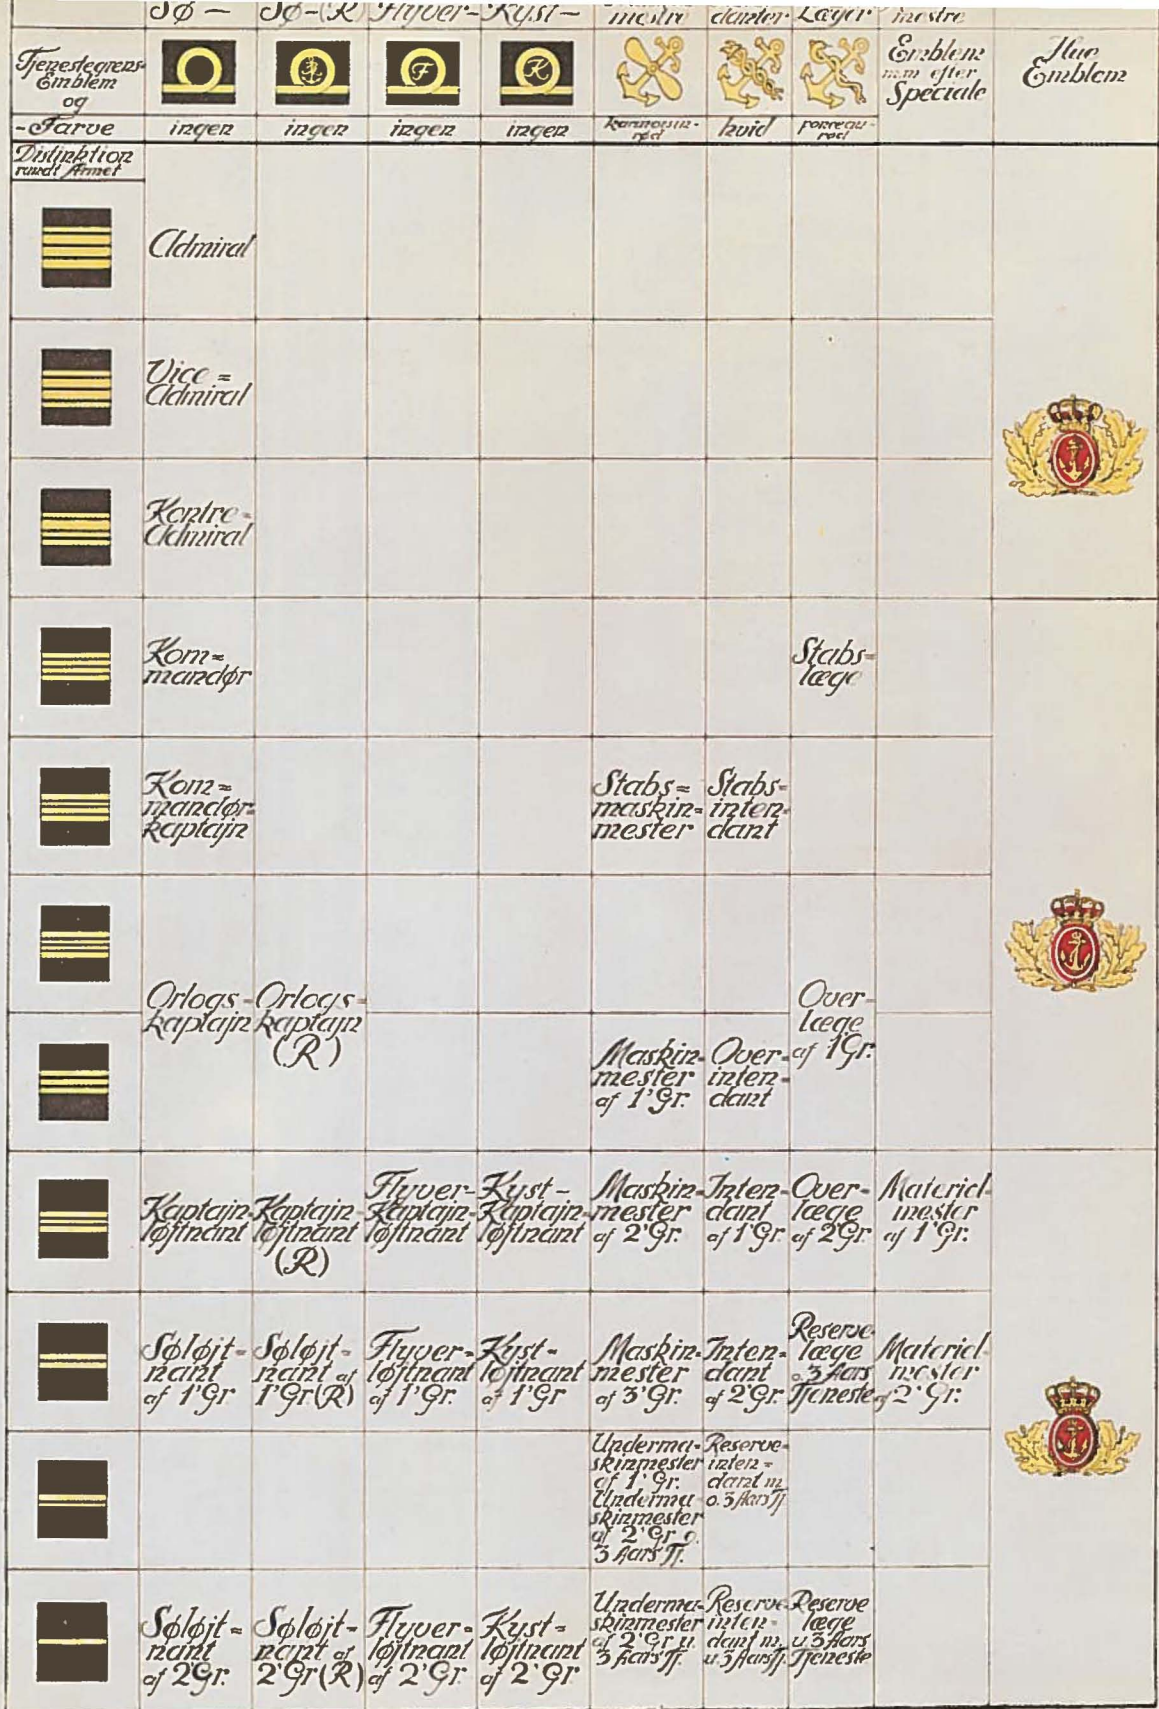 Sø –
Sø-(R)
Flyver-
Kyst –
mestre
danter
Læger
mestre
Tjenestegrens-
Emblem
og
-Farve
F
K
Emblem
m.m efter
Speciale
Hue
Emblem
ingen
ingen
ingen
ingen
karmoisin-
rød
hvid
ponceau-
rød
Distinktion
rundt Armet
Admiral
Vice=
Admiral
Kontre-
Admiral
Kom=
mandør
Stabs-
læge
Kom=
mandør-
kaptajn
Stabs=
maskin-
mester
Stabs-
inten-
dant
Orlogs-
kaptajn
Orlogs-
kaptajn
(R)
Over-
læge
af 1'Gr.
Maskin-
mester
af 1'Gr.
Over-
inten-
dant
Kaptajn-
løjtnant
Kaptajn-
løjtnant
(R)
Flyver-
Kaptajn-
løjtnant
Kyst-
Kaptajn-
løjtnant
Maskin-
mester
af 2'Gr.
Inten-
dant
af 1'Gr.
Over-
læge
af 2'Gr.
Materiel-
mester
af 1'Gr.
Søløjt-
nant
af 1'Gr
Søløjt-
nant af
1'Gr.(R)
Flyver-
løjtnant
af 1'Gr.
Kyst-
løjtnant
af 1'Gr
Maskin-
mester
af 3'Gr.
Inten-
dant
af 2'Gr.
Reserve-
læge
o. 3 Aars
Tjeneste
Materiel-
mester
af 2'Gr.
Underma-
skinmester
af 1'Gr.
Underma-
skinmester
af 2'Gr o.
3 Aars Tj.
Reserve-
inten=
dant m
o. 3 Aars Tj
Søløjt=
nant
af 2'Gr.
Søløjt-
nant af
2'Gr(R)
Flyver=
løjtnant
af 2'Gr.
Kyst=
løjtnant
af 2'Gr
Underma-
skinmester
af 2'Gr u.
3 Aars Tj.
Reserve
inten-
dant m.
u. 3 Aars Tj.
Reserve
læge
u. 3 Aars
Tjeneste